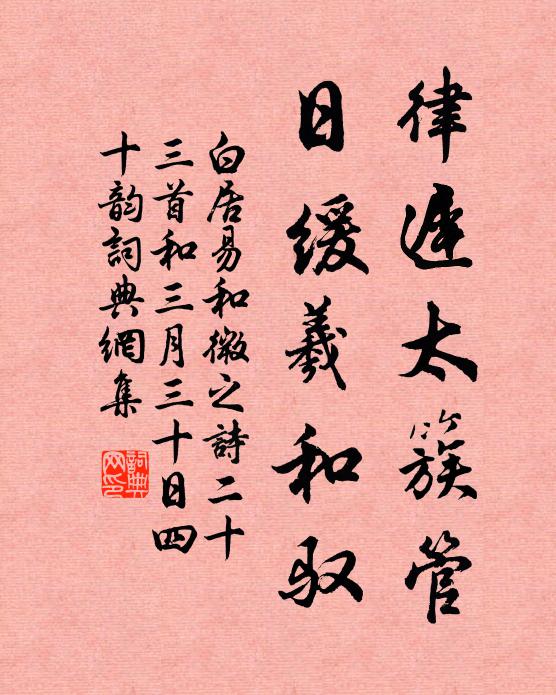 律遲太簇管
日緩羲和馭
白居易和微之詩二十
三首和三月三十日四
十韵詞典網集